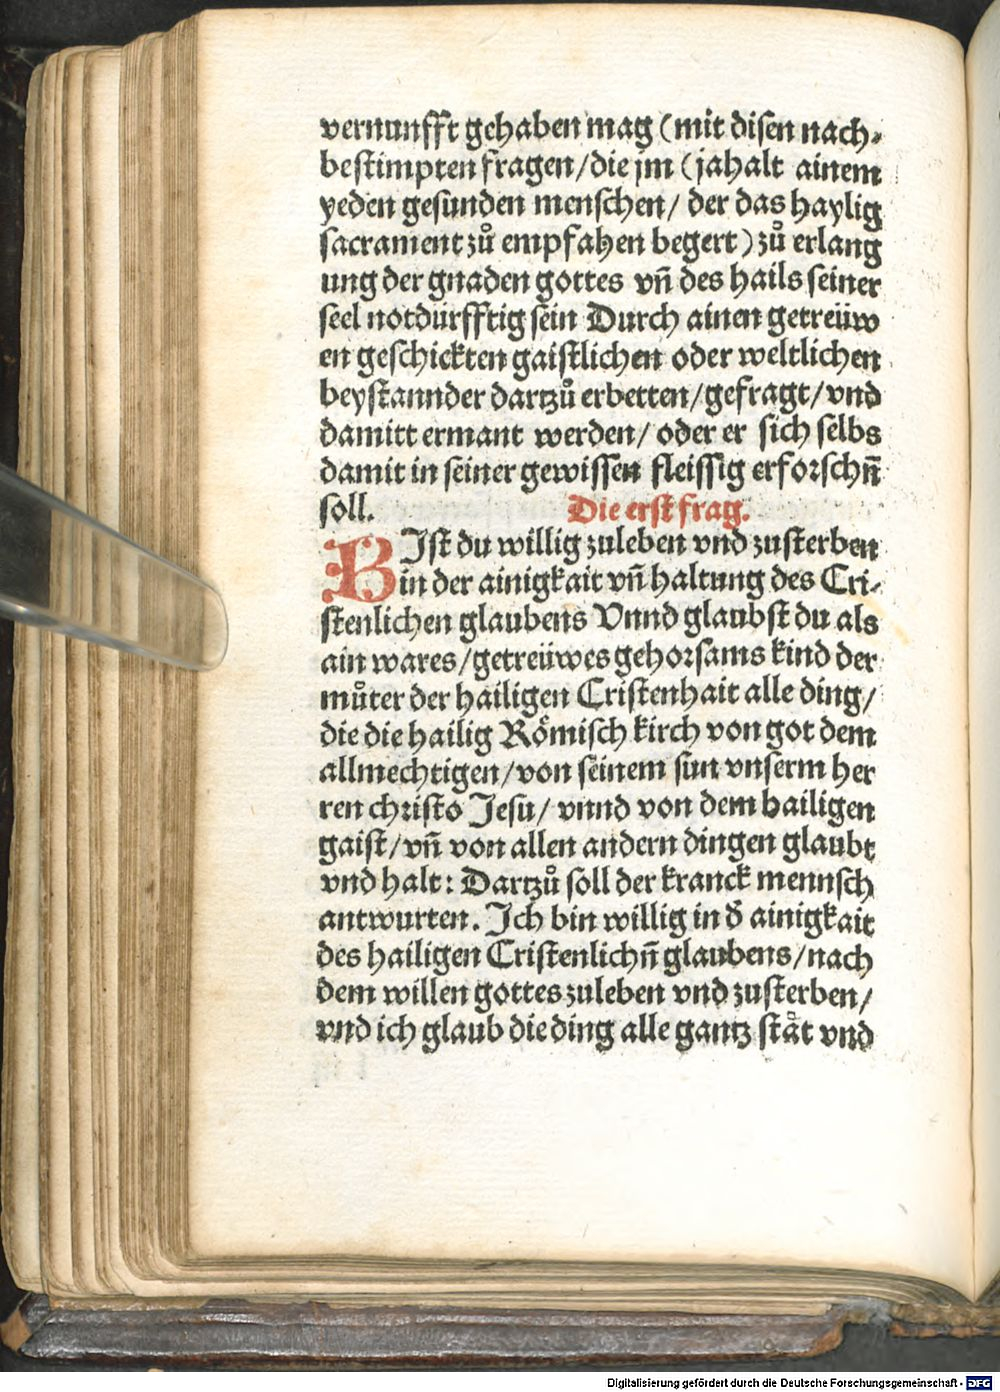 vernunfft gehaben mag (mit disen nach⸗
bestimpten fragen/die jm (jahalt ainem
yeden gesunden menschen/ der das haylig
sacrament zuͦ empfahen begert) zuͦ erlang
ung der gnaden gottes vn̄ des hails seiner
seel notdurfftig sein Durch ainen getreüw
en geschickten gaistlichen oder weltlichen
beystannder dartzuͦ erbetten/gefragt/vnd
damitt ermant werden/ oder er sich selbs
damit in seiner gewissen fleissig erforschn̄
soll. Die erst frag.
BIst du willig zuleben vnd zusterben
in der ainigkait vn̄ haltung des Cri⸗
stenlichen glaubens Vnnd glaubst du als
ain wares/getreüwes gehorsams kind der
muͦter der hailigen Cristenhait alle ding/
die die hailig Roͤmisch kirch von got dem
allmechtigen/von seinem sun vnserm her
ren christo Jesu/ vnnd von dem hailigen
gaist/vn̄ von allen andern dingen glaubt
vnd halt: Dartzuͦ soll der kranck mennsch
antwurten. Ich bin willig in d̄ ainigkait
des hailigen Cristenlichn̄ glaubens/nach
dem willen gottes zuleben vnd zusterben/
vnd ich glaub die ding alle gantz staͤt vnd
Digitalisierung gefördert durch die Deutsche Forschungsgemeinschaft - DFG